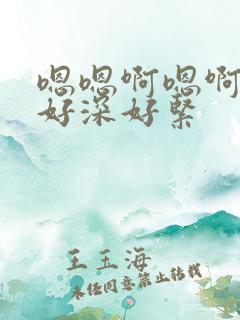 嗯嗯啊嗯啊
好深好紧
王玉海
未经同意禁止转载